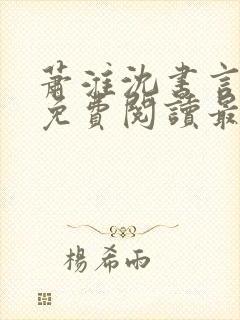 蕭淮沈書言
免費閱讀最
楊希雨